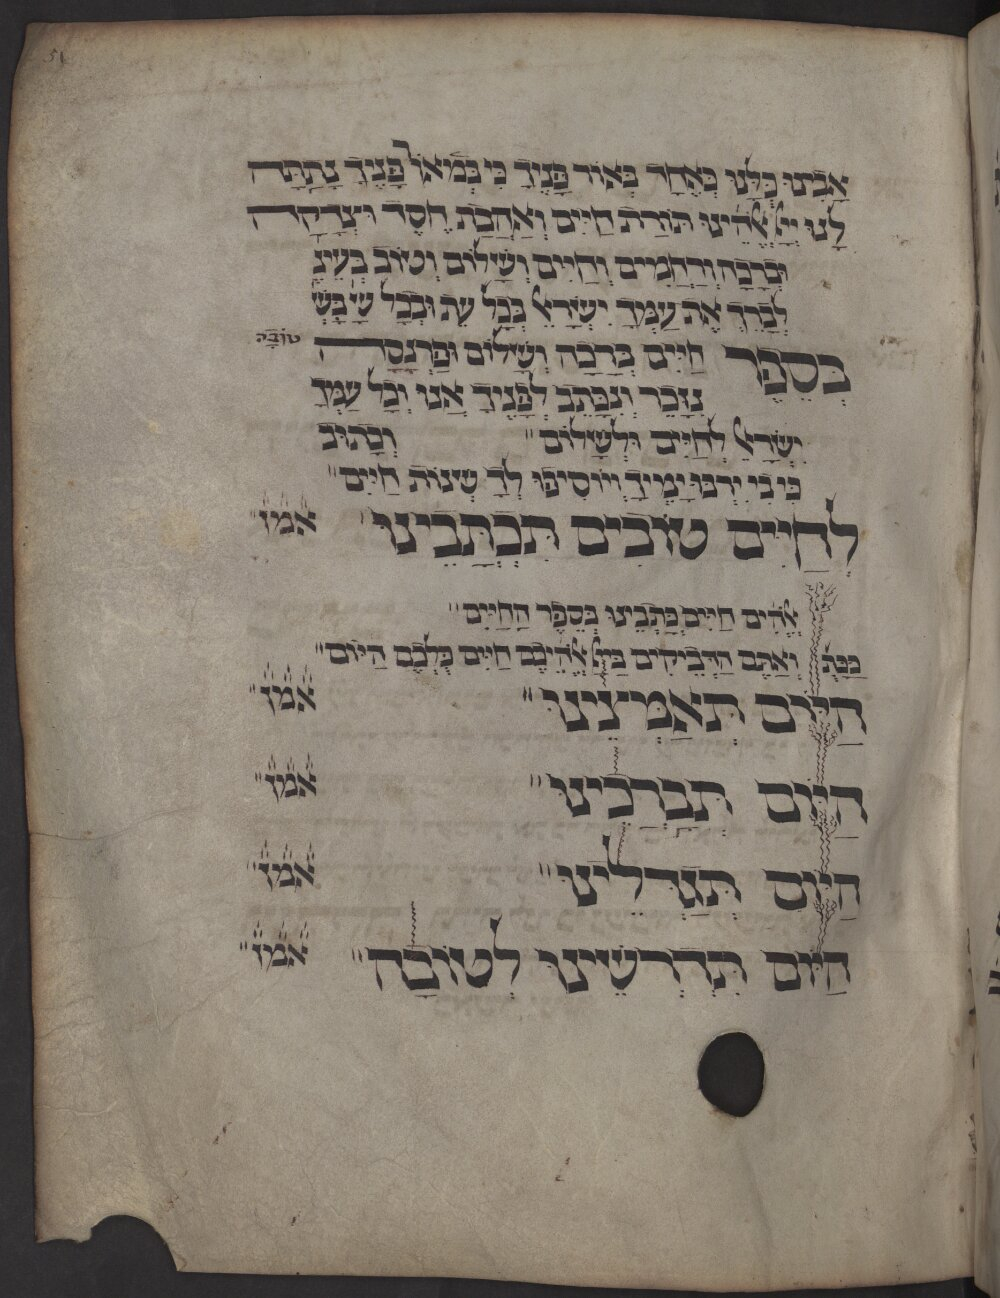 51
אָבִינוּ כֻּלָּנוּ כְּאֶחָד בְּאוֹר פָּנֶיךָ כִּי בִּמְאוֹר פָּנֶיךָ נָתַתָּה
לָנוּ יְיָ אֱלֹהֵינוּ תּוֹרַת חַיִּים וְאַהֲבַת חֶסֶד וּצְדָקָה
וּבְרָכָה וְרַחֲמִים וְחַיִּים וְשָׁלוֹם וְטוֹב בְּעֵינֶ
לְבָרֵךְ אֶת עַמְּךָ יִשְׂרָאֵל בְּכָל עֵת וּבְכָל שָׁ בְּשְׁ
בְּסֵפֶר חַיִּים בְּרָכָה וְשָׁלוֹם וּפַרְנָסָה טוֹבָה
נִזָּכֵר וְנִכָּתֵב לְפָנֶיךָ אָנוּ וְכָל עַמְּךָ
יִשְׂרָאֵל לְחַיִּים וּלְשָׁלוֹם׃ וְכָתוּב
כִּי בִי יִרְבּוּ יָמֶיךָ וְיוֹסִיפוּ לְךָ שְׁנוֹת חַיִּים׃
לְחַיִּים טוֹבִים תִּכְתְּבֵינוּ׃ אמן׃
אֱלֹהִים חַיִּים כָּתְבֵינוּ בְּסֵפֶר הַחַיִּים׃
ככת׳ וְאַתֶּם הַדְּבֵיקִים בַּייָ אֱלֹהֵיכֶם חַיִּים כֻּלְּכֶם הַיּוֹם׃
הַיּוֹם תְּאַמְּצֵינוּ׃ אמן׃
הַיּוֹם תְּבָרְכֵינוּ׃ אמן׃
הַיּוֹם תְּגַדְּלֵינוּ׃ אמן׃
הַיּוֹם תִּדְרְשֵׁינוּ לְטוֹבָה׃ אמן׃